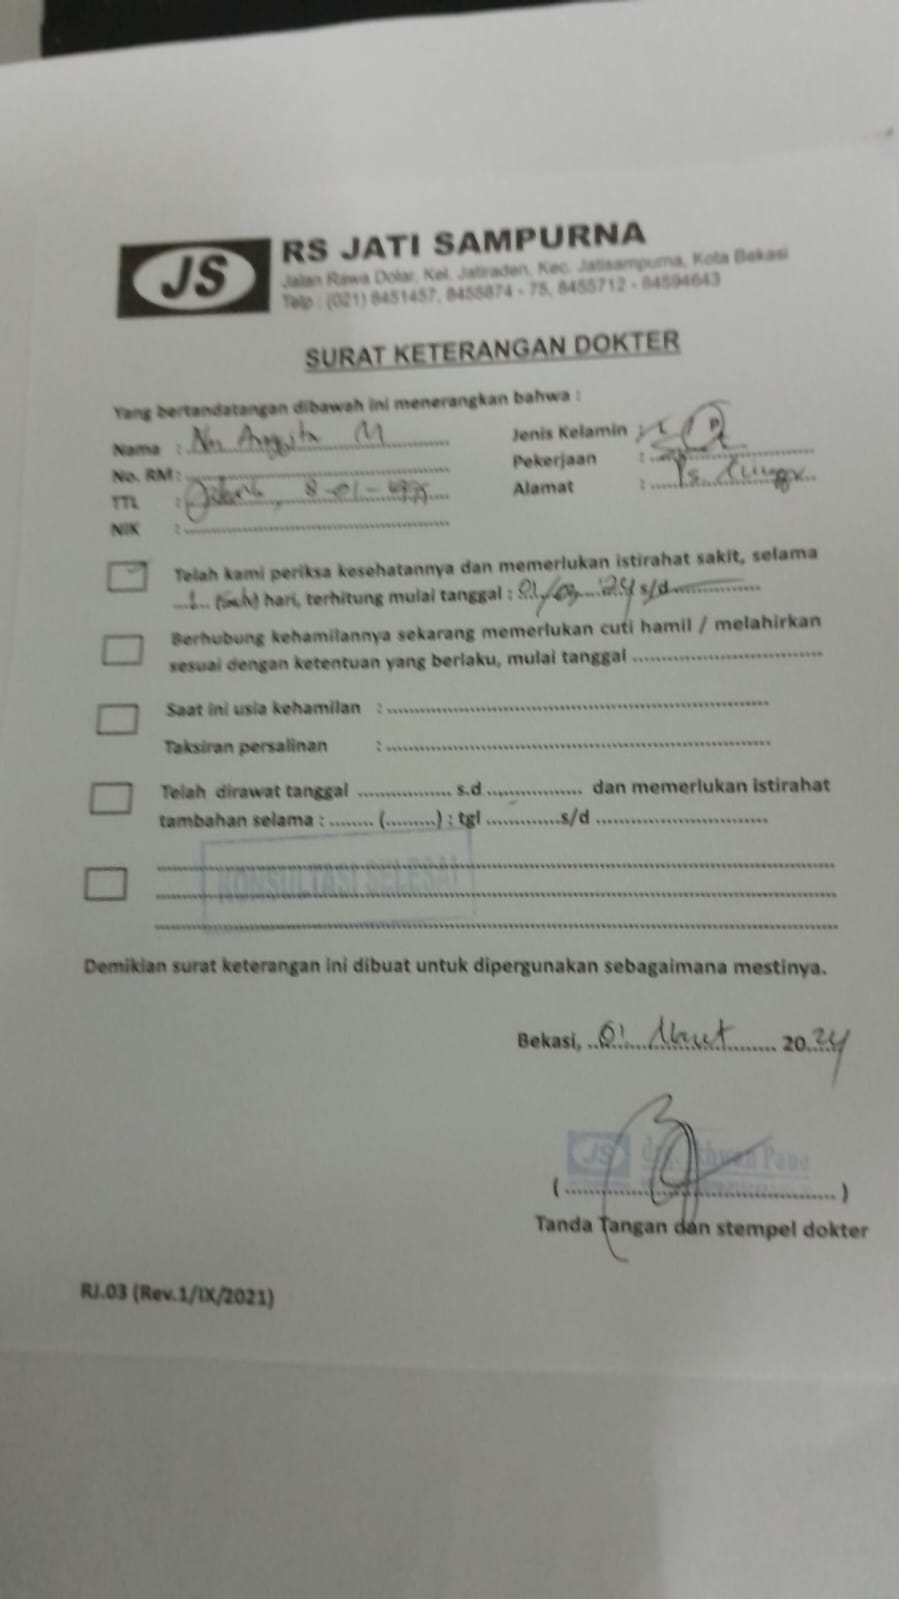 JS
RS JATI SAMPURNA
Jalan Rawa Dolar, Kel. Jatiraden, Kec. Jatisampurna, Kota Bekasi
Telp : (021) 8451457, 8455874 - 75, 8455712 - 84594643
SURAT KETERANGAN DOKTER
Yang bertandatangan dibawah ini menerangkan bahwa :
Nama : Nn Anggita M
Jenis Kelamin : L / P
No. RM :
Pekerjaan :
TTL : 8-01-
Alamat :
NIK :
Telah kami periksa kesehatannya dan memerlukan istirahat sakit, selama
1 ( ) hari, terhitung mulai tanggal : 01/03 '24 s/d
Berhubung kehamilannya sekarang memerlukan cuti hamil / melahirkan
sesuai dengan ketentuan yang berlaku, mulai tanggal
Saat ini usia kehamilan :
Taksiran persalinan :
Telah dirawat tanggal s.d dan memerlukan istirahat
tambahan selama : (.........) : tgl s/d
KONSULTASI SELESAI
Demikian surat keterangan ini dibuat untuk dipergunakan sebagaimana mestinya.
Bekasi, 01 Maret 2024
JS Pane
( )
Tanda Tangan dan stempel dokter
RJ.03 (Rev.1/IX/2021)